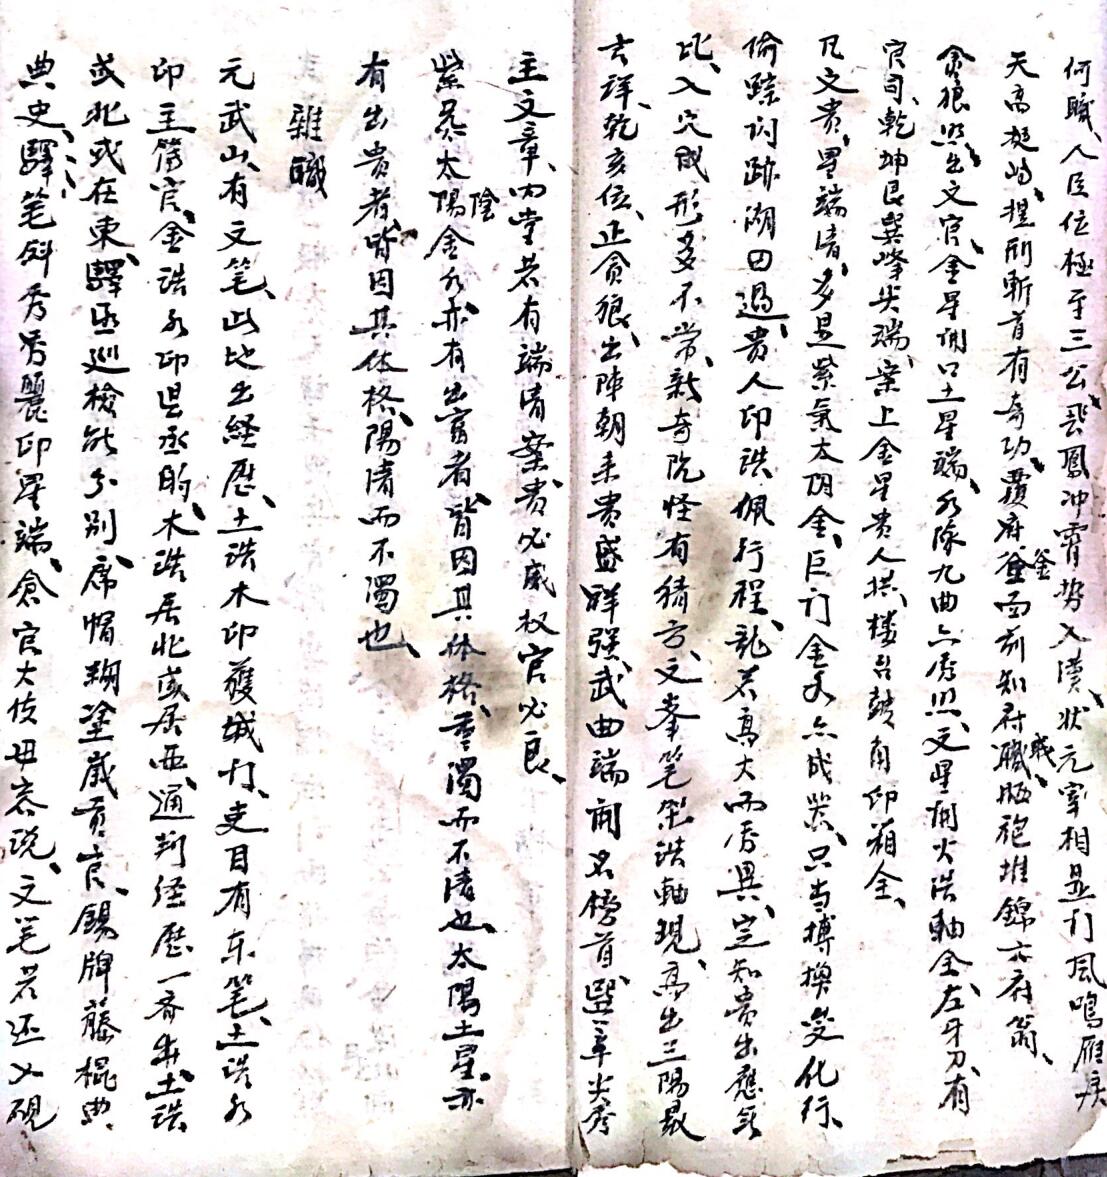 何職、人臣位極至三公、飛鳳冲霄勢入漢、狀元宰相是刂風鳴雁疾
天高挺峙、提刑斬首有奇功、覆府金面前知府職、晒袍堆錦六府翁、
貪狼照出文官、金星開口土星端、水隊九曲亦秀照、文星開火誥軸全、左牙刀、有
官司、乾坤艮巽峰尖瑞、案上金星貴人拱、樓台鼓角印箱全、
凡文貴、星端清、多是紫氣太陰金、巨门金水亦成器、只与博換变化行、
偷踪闪跡湖田過、贵人印誥佩行程、龍若高大而秀異、定知贵出應無
比、入穴成形多不常、新奇阮怪有猪方、文峯笔架誥軸現、高出三陽最
吉祥、乾亥位、正貪狼、出陣朝未贵盛祥强、武曲端開名榜首、巽辛尖秀
主文章、内堂若有端清案、贵必威权官必良、
紫炁太陽陰金水、亦有出富者、皆因其体格、重濁而不清也、太陽土星、亦
有出贵者、皆因其体格、陽清而不濁也、
雜職
元武山、有文笔、此地出経歷、土誥木印護城门、吏目有东笔、土誥水
印主簿官、金誥水印是丞的、木誥居北或居西、通判経歷一齐出、土誥
或北或在東、驛丞巡檢能分别、席帽糊塗歲贡官、錫牌藤棍典
典史、驛笔斜秀秀麗印星端、倉官大使毋容说、文笔若还入硯